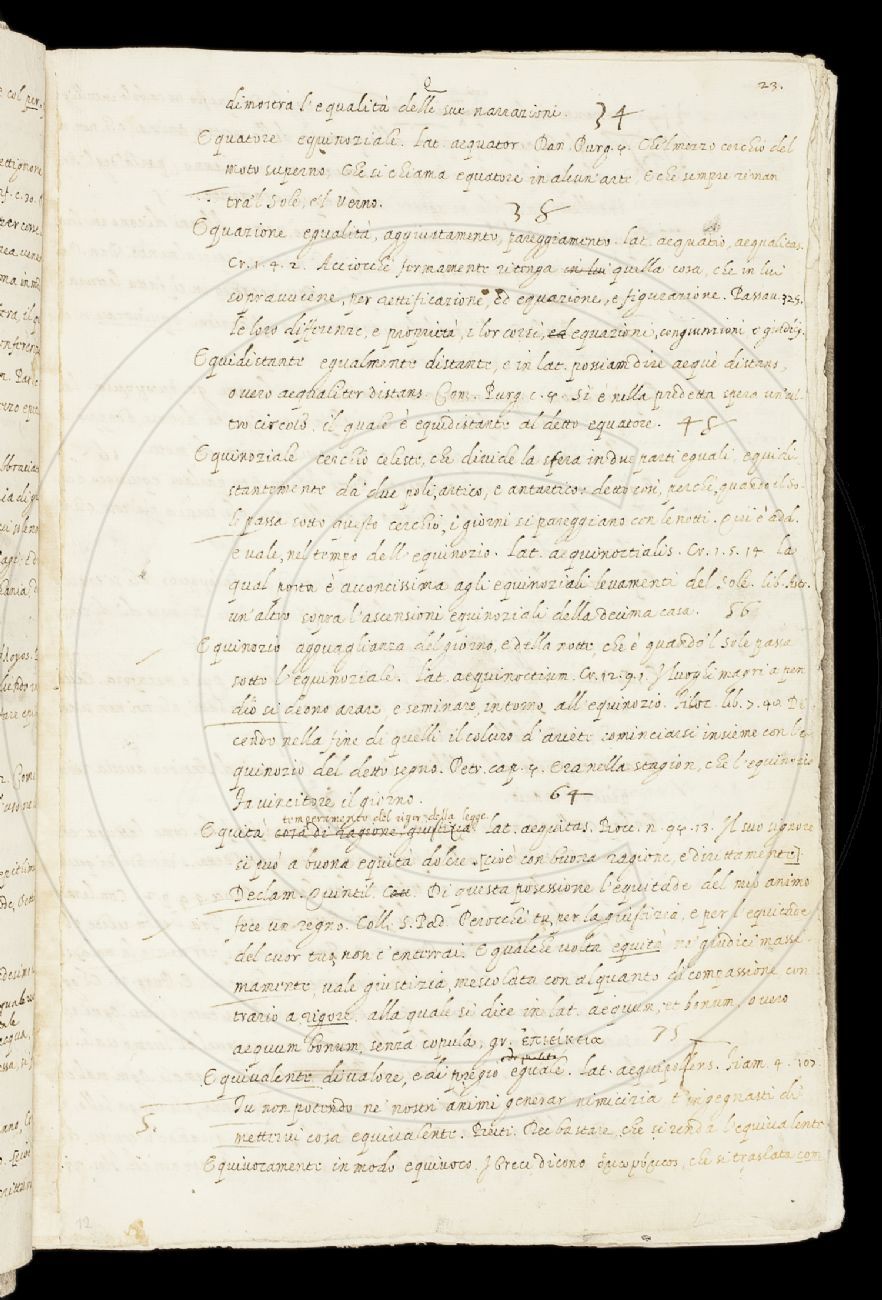 23.
dimostra l'equalità delle sue narrazioni. 34
Equatore equinoziale. Lat. aequator. Dan. Purg. 4. Che'l mezzo cerchio del
moto superno, Che si chiama equatore in alcun'arte, E che sempre riman
tra'l Sole, e'l verno.
38
Equazione egualità, aggiustamento, pareggiamento. Lat. aequatio, aequalitas.
Cr. 1. 4. 2. Acciocchè fermamente ritenga in lui quella cosa, che in lui
sopravviene, per rettificazione, ed equazione, e figurazione. Passav. 325.
Le loro differenze, e proprietà, i lor corsi, ed equazioni, congiunzioni e
Equidistante egualmente distante, e in lat. possiam dire aequè distans,
overo aequaliter distans. Com. Purg. c. 4. Si è nella predetta spera un'al-
tro circolo, il quale è equidistante al detto equatore. 48
Equinoziale cerchio celeste, che divide la sfera in due parti eguali, equidi-
stantemente da' due poli, artico, e antartico: detto così, perchè, quando il so-
le passa sotto questo cerchio, i giorni si pareggiano con le notti. Qui è add.
e vale, nel tempo dell'equinozio. Lat. aequinoctialis. Cr. 1. 5. 14. la
qual porta è acconcissima agli equinoziali levamenti del Sole. lib. Astr.
un'altro sopra l'ascensioni equinoziali della decima casa. 56
Equinozio agguaglianza del giorno, e della notte, che è quando'l Sole passa
sotto l'equinoziale. Lat. aequinoctium. Cr. 12. 9. 1. I luoghi magri a pen-
dio si deono arare e seminare, intorno all'equinozio. Filoc. lib. 7. 40. Di-
cendo nella fine di quelli il coluro d'ariete cominciarsi insieme con l'e-
quinozio del detto segno. Petr. cap. 4. Era nella stagion, che l'equinozio
Fa vincitore il giorno. 64
temperamento del rigor della legge
Equità cosa di ragione, giustizia. Lat. aequitas. Bocc. n. 94. 13. Il suo signore
si può a buona equità dolere [cioè con buona ragione, e dirittamente]
Declam. Quintil. Di questa posessione l'equitade del mio animo
fece un regno. Coll. S. Pad. Perocchè tu, per la giustizia, e per l'equitade
del cuor tuo, non c'enterrai. E qualche volta equità ne' giudici masse-
mamente, vale giustizia, mescolata con alquanto di compassione con-
trario a rigore. alla quale si dice in lat. aequum, et bonum, overo
aequum bonum, senza copula, gr. ἐπιείκεια 75
Equivalente di valore, e di pregio eguale. Lat. aequipollens. Fiam. 4. 107.
Tu non potendo ne' nostri animi generar nimicizia t'ingegnasti di
5. metterui cosa equivalente. Dee bastare, che si renda l'equivalente
Equivocamente in modo equivoco. I Greci dicono che si traslata com
12